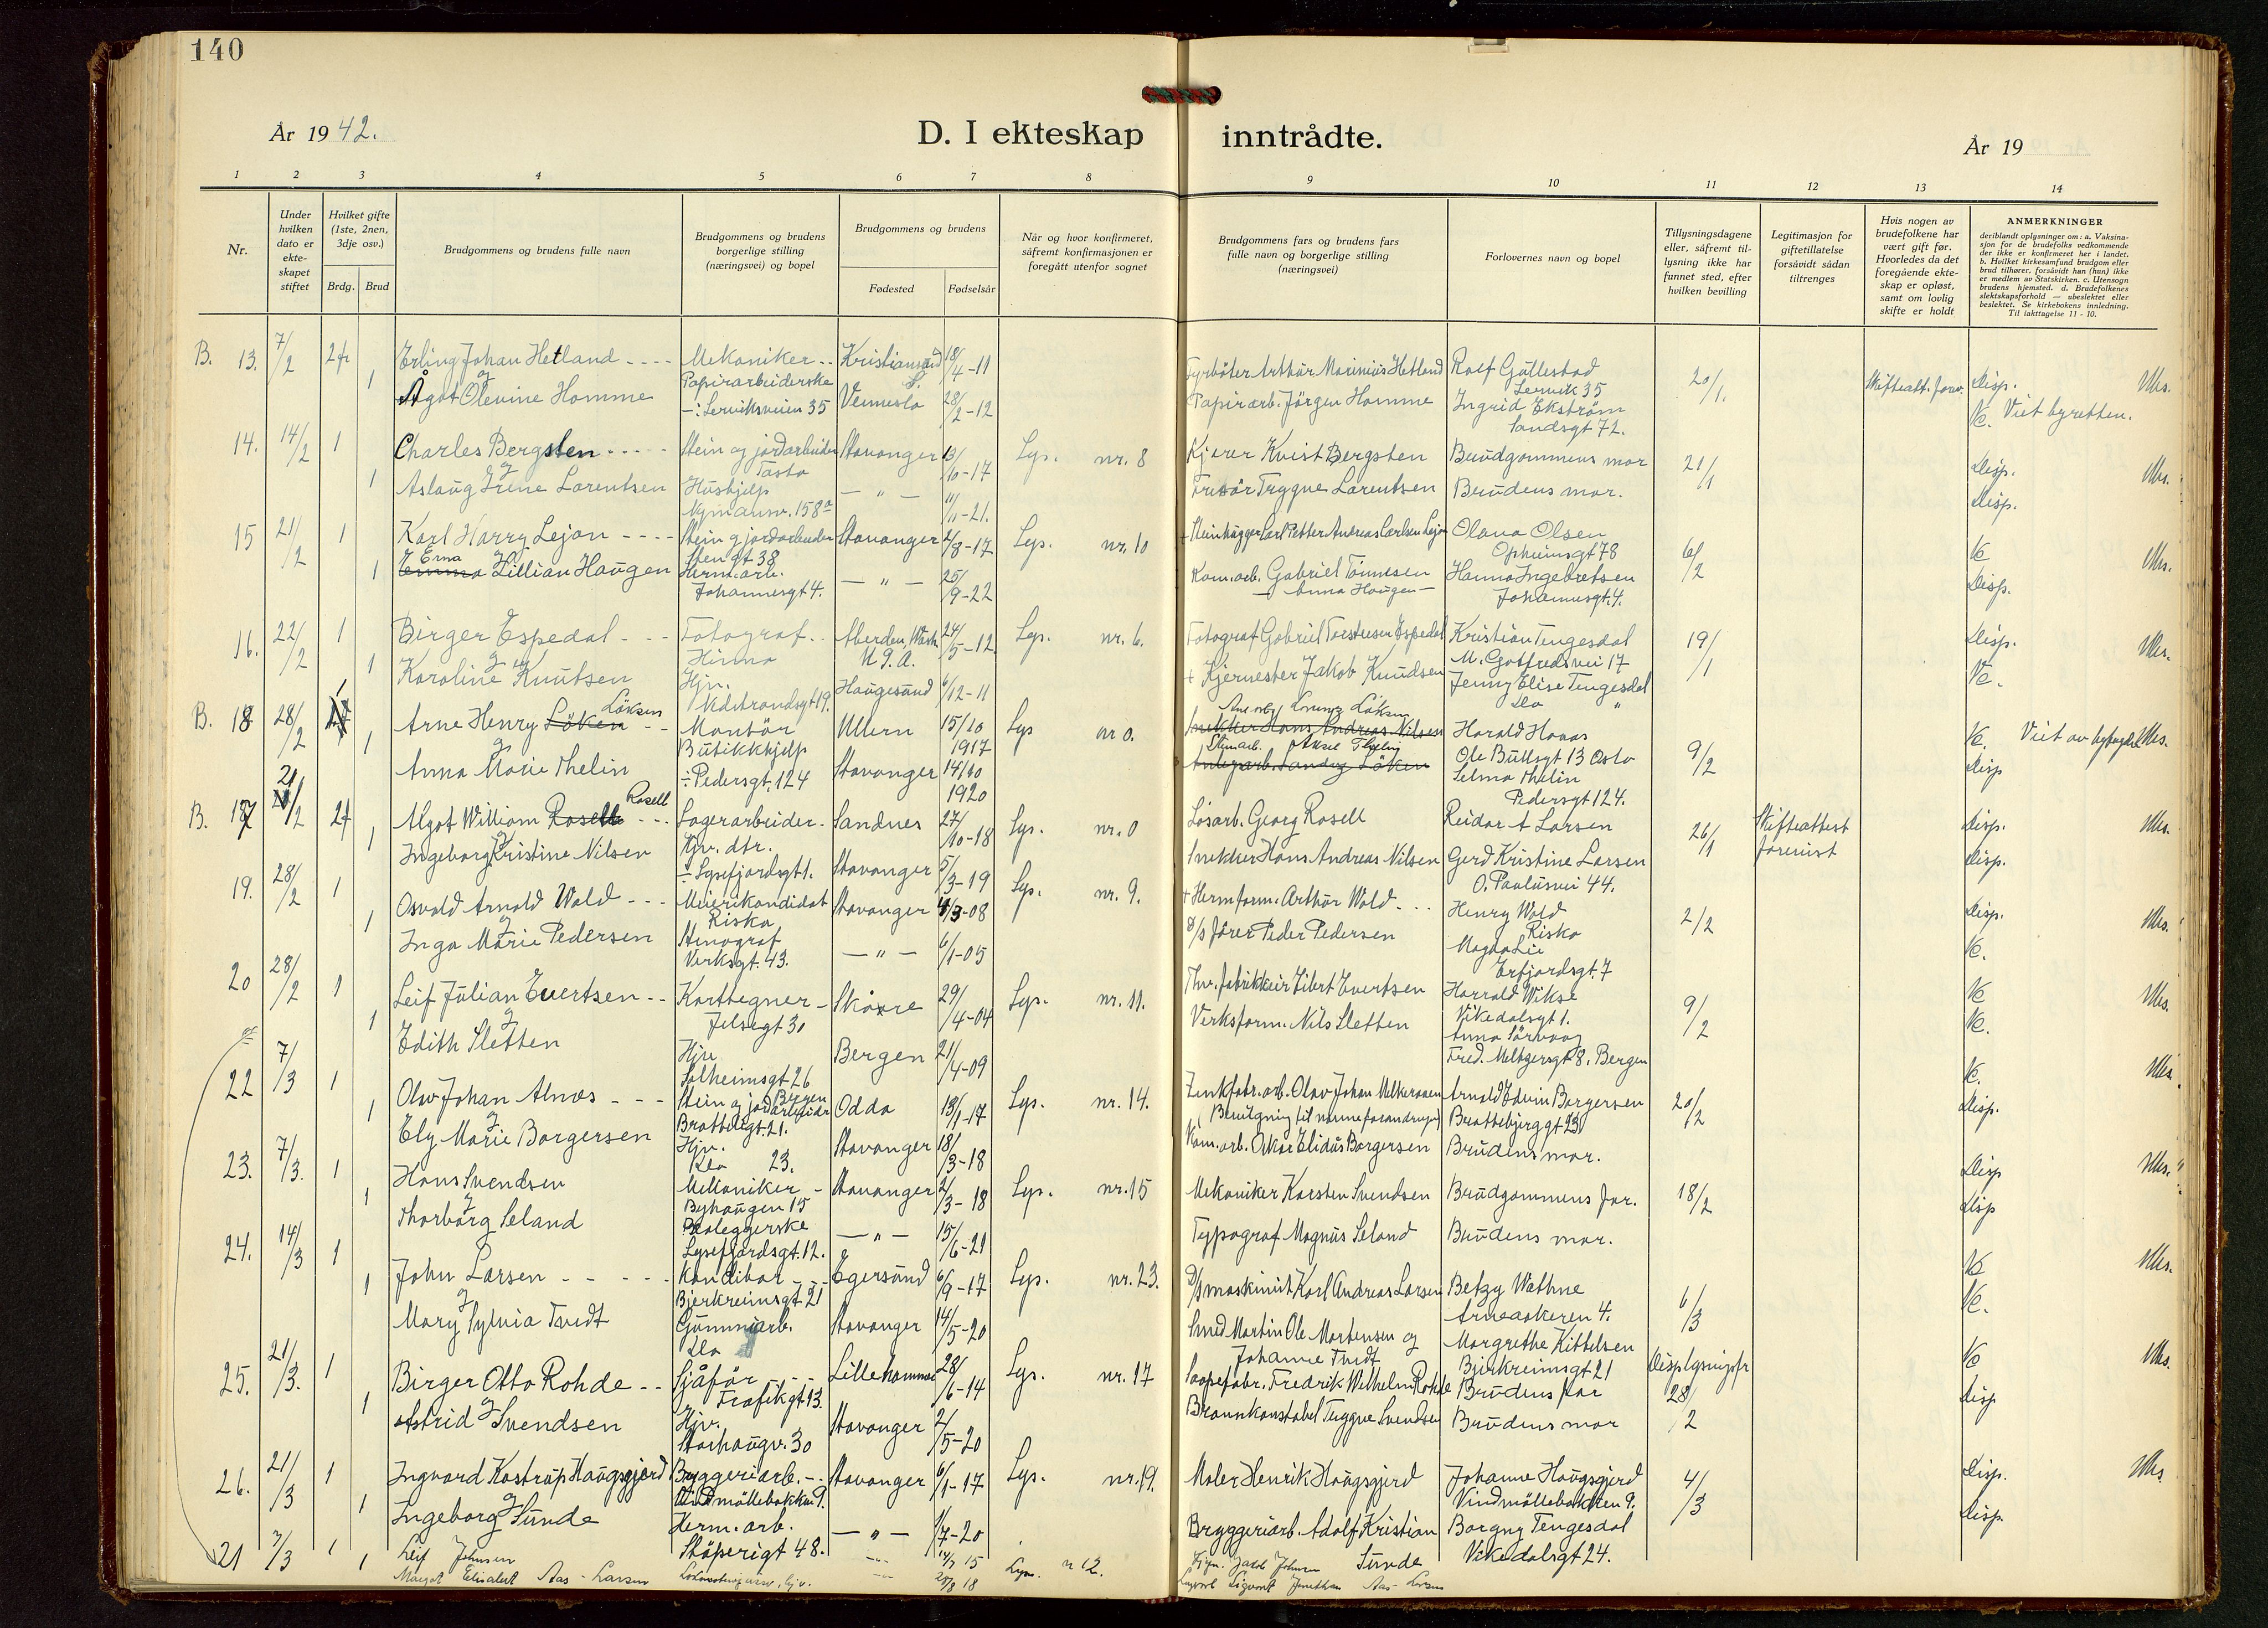 140
År 1942.
D. I ekteskap inntrådte.
År 19
1 2 3 4 5 6 7 8 9 10 11 12 13 14
Nr.
Under hvilken dato er ekteskapet stiftet
Hvilket gifte (1ste, 2nen, 3dje osv.)
Brdg. Brud
Brudgommens og brudens fulle navn
Brudgommens og brudens borgerlige stilling (næringsvei) og bopel
Brudgommens og brudens
Fødested Fødselsår
Når og hvor konfirmeret, såfremt konfirmasjonen er foregått utenfor sognet
Brudgommens fars og brudens fars fulle navn og borgerlige stilling (næringsvei)
Forlovernes navn og bopel
Tillysningsdagene eller, såfremt tillysning ikke har funnet sted, efter hvilken bevilling
Legitimasjon for giftetillatelse forsåvidt sådan tiltrenges
Hvis nogen av brudefolkene har vært gift før. Hvorledes da det foregående ekteskap er opløst, samt om lovlig skifte er holdt
ANMERKNINGER
deriblandt oplysninger om: a. Vaksinasjon for de brudefolks vedkommende der ikke er konfirmeret her i landet. b. Hvilket kirkesamfund brudgom eller brud tilhører, forsåvidt han (hun) ikke er medlem av Statskirken. c. Utensogn brudens hjemsted. d. Brudefolkenes slektskapsforhold — ubeslektet eller beslektet. Se kirkebokens innledning. Til iakttagelse 11 - 10.
B. 13. 7/2 2 Erling Johan Hetland Mekaniker Kristiansand S. 18/4-11 Fyrbøter Arthur Marinius Hetland Rolf Gullestad 20/1. Disp. Ubs.
og 1 Papirarbeiderske Lervik 35
Ågot Olevine Homme Lerviksveien 35 Vennesla 28/2-12 Papirarb. Jørgen Homme Ingrid Ekström Viet byretten.
Sandsgt 72.
14. 14/2 1 Charles Bergsten Stein og jordarbeider Stavanger 13/10-17 Lys. nr. 8 Kjører Kvist Bergsten Brudgommens mor 21/1 Disp. Ubs.
og 1 Tasta
Aslaug Irene Larentsen Hushjelp — " — 11/11-21. Frisør Trygve Larentsen Brudens mor. Disp.
15 21/2 1 Karl Harry Lejon Stein og jordarbeider Stavanger 2/8-17 Lys. nr. 10 Steinhugger Carl Petter Andreas Carlsen Lejon Olava Olsen 6/2 Ubs.
Erna og Stengt 38 Opheimsgt 78
Emma Lillian Haugen Herm.arb. — " — 25/9-22 Kom.arb. Gabriel Tønnesen Hanna Ingebretsen Disp.
Johannesgt 4. Anna Haugen Johannesgt. 4.
16. 22/2 1 Birger Espedal Fotograf Aberden, Wash. U.S.A. 24/5-12 Lys. nr. 6. Fotograf Gabriel Torstensen Espedal Kristian Tengesdal 19/1 Disp. Ubs.
og 1 Hinna M. Gotfredsvei 17
Karoline Knutsen Hjv. Haugesund 6/12-11 Kjernester Jakob Knudsen Jenny Elise Tengesdal
Nedstrandsgt 19. do "
B. 18 28/2 Arne Henry Löken Löksen Montör Ullern 15/10 1917 Lys nr 0. Snekker Hans Andreas Nilsen Harald Hovas 9/2 Ubs.
og 1 Butikkhjelp Ole Bullsgt 13 Oslo
Anna Marie Thelin Pedersgt. 124 Stavanger 14/10 1920 Selma Thelin Disp
Pedersgt 124.
B. 17 21/2 2 Algot William Rosell Lagerarbeider Sandnes 27/10-18 Lys. nr. 0 Løsarb. Georg Rosell Reidar A Larsen 26/1 Skifteattest forevist Disp. Ubs.
Ingeborg Kristine Nilsen Hjv. dtr. Lysefjordsgt 1. Stavanger 5/3-19 Snekker Hans Andreas Nilsen Gerd Kristine Larsen Disp.
O. Paulusvei 44.
19. 28/2 1 Osvald Arnold Wold Meierikandidat Stavanger 4/3-08 Lys. nr. 9. Hermform. Arthur Wold Henry Wold 2/2 Disp. Ubs.
og 1 Riska Riska
Inga Marie Pedersen Stenograf — " — 6/1-05 D/S fører Peder Pedersen Magda Lie
Verksgt. 43. Erfjordsgt. 7
20 28/2 1 Leif Julian Evertsen Karttegner Skåre 29/4-04 Lys. nr. 11. Eilert Evertsen Harrald Wikse 9/2 Ubs.
og 1 Jelsegt 30 Vikedalsgt 1.
Edith Sletten Hjv. Bergen 21/4-09 Verksform. Nils Sletten Anna Sörvaag
Solheimsgt 26 Bergen Fred. Meltzersgt 8. Bergen
22 7/3 1 Olav Johan Alnæs Stein og jordarbeider Odda 13/1-17 Lys. nr. 14. Zinkfabr. arb. Olav Johan Melkeraaen Arnold Edvin Borgersen 20/2 Ubs.
og 1 Brattebergt. 21. (Bevilgning til navneforandring) Brattebjerggt 23
Ely Marie Borgersen Hjv. Stavanger 18/3-18 Kom. arb. Oskar Elidius Borgersen Brudens mor. Disp.
do 23.
23. 7/3. 1 Hans Svendsen Mekaniker Stavanger 2/3-18 Lys. nr. 15 Mekaniker Karsten Svendsen Brudgommens far. 18/2 Disp Ubs.
og 1 Byhaugen 15
Thorborg Seland Ileggerske — " — 15/6-21 Typograf Magnus Seland Brudens mor. Disp
Lysefjordsgt. 12.
24. 14/3 1 John Larsen Konditor Egersund 6/9-17 Lys. nr. 23. D/S maskinist Karl Andreas Larsen Betzy Wathne 6/3 Ubs.
og 1 Bjerkreimsgt 21 Arneaakeren 4.
Mary Sylvia Tvedt Gummiarb. Stavanger 14/5-20 Smed Martin Ole Mortensen og Margrethe Kittelsen
do Johanne Tvedt Bjerkreimsgt 21
25. 21/3. 1 Birger Otto Rohde Sjåför Lillehammer 28/6-14 Lys. nr. 17 Saapefabr. Fredrik Wilhelm Rohde Brudens far Displysningsfr 28/2 Ubs.
og 1 Trafikgt 13.
Astrid Svendsen Hjv. Stavanger 2/5-20 Brannkonstabel Trygve Svendsen Brudens mor Disp
Storhaugv. 30
26. 21/3 1 Ingvard Kastrup Haugsgjerd Bryggeriarb. Stavanger 6/1-17 Lys. nr. 19. Maler Henrik Haugsgjerd Johanne Haugsgjerd 4/3 Disp. Ubs
og 1 Vindmöllebakken 9. Vindmöllebakken 9.
Ingeborg Sunde Herm. arb. — " — 1/7-20 Bryggeriarb. Adolf Kristian Sunde Borgny Tengesdal Disp.
Støperigt 48. Vikedalsgt 24.
21 7/3 1 Leif Johnsen 15 Lys. n 12. Jakob Johnsen
1 Margot Elisabet Aas-Larsen 20/8 18 Sigvart Jonathan Aas-Larsen